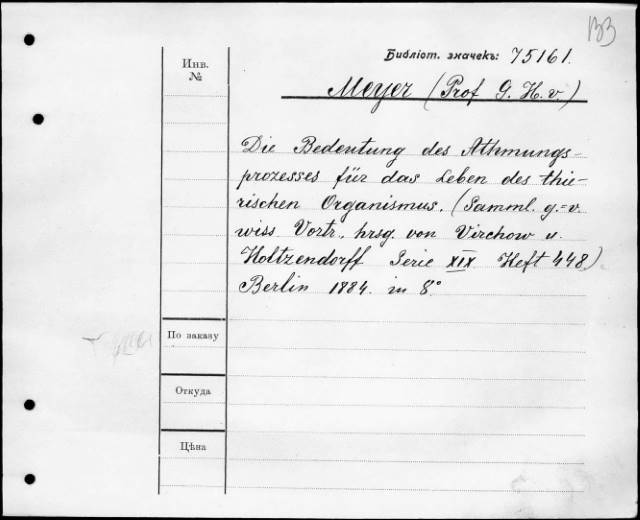 ВЗ
Библіот. значекъ: 75161.
Инв.
№
Meyer (Prof G. H. v.)
Die Bedeutung des Athmungs-
prozesses für das Leben des thie-
rischen Organismus. (Samml. g.=v.
wiss Vortr., hrsg. von Virchow u.
Holtzendorff Serie XIX Heft 448.)
Berlin 1884. in 8°
По заказу
Откуда
Цѣна